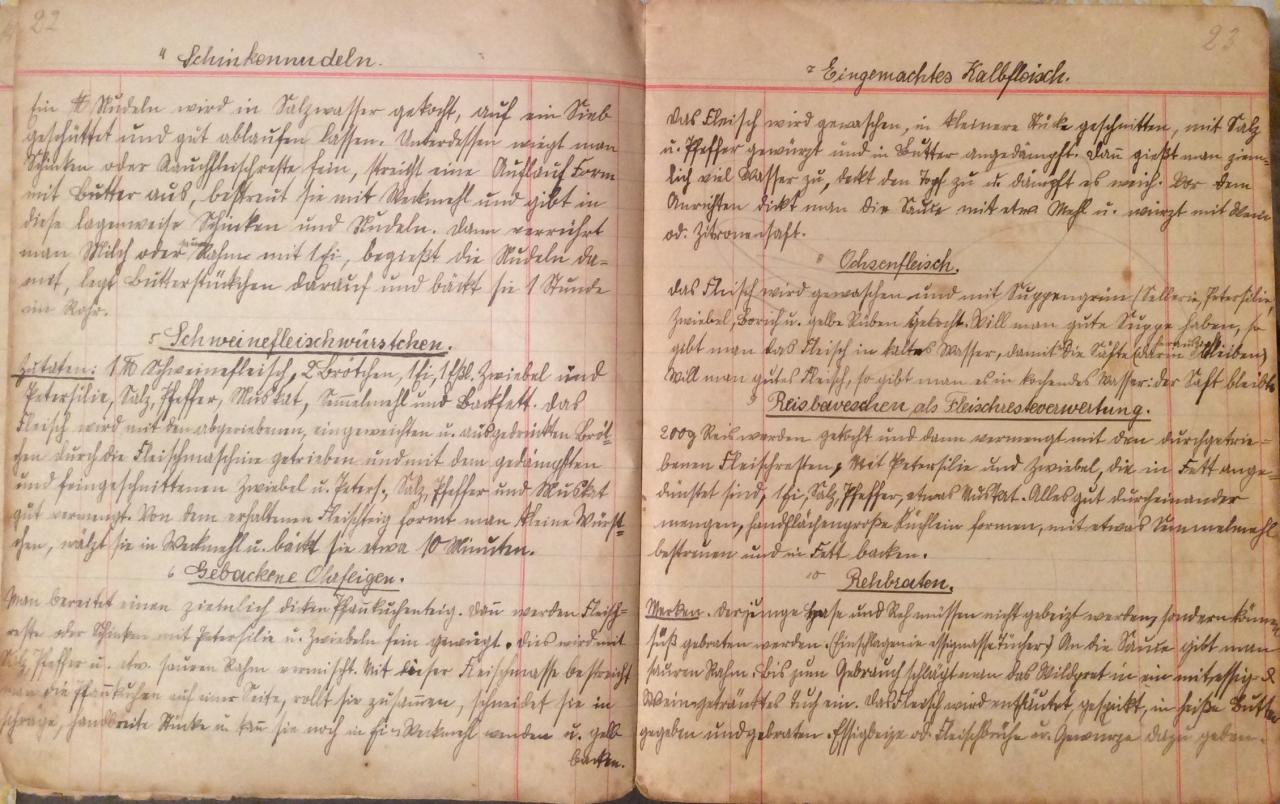 22
4 Schinkennudeln.
Ein ℔ Nudeln wird in Salzwasser gekocht, auf ein Sieb
geschüttet und gut ablaufen lassen. Unterdessen wiegt man
Schinken oder Rauchfleischreste fein, streicht eine Auflauf Form
mit Butter aus, bestreut sie mit Weckmehl und gibt in
diese lagenweise Schinken und Nudeln. Dann verrührt
man Milch oder sauren Rahm mit 1 Ei, begießt die Nudeln da=
mit, legt Butterstückchen darauf und bäckt sie 1 Stunde
im Rohr.
5 Schweinefleischwürstchen.
Zutaten: 1 ℔ Schweinefleisch, 2 Brötchen, 1 Ei, 1 Eßl. Zwiebel und
Petersilie, Salz, Pfeffer, Muskat, Semmelmehl und Backfett. Das
Fleisch wird mit den abgeriebenen, eingeweichten u. ausgedrückten Bröt=
chen durch die Fleischmaschine getrieben und mit dem gedämpften
und feingeschnittenen Zwiebel u. Peters., Salz, Pfeffer und Muskat
gut vermengt. Von dem erhaltenen Fleischteig formt man kleine Würst=
chen, wälzt sie in Weckmehl u. bäckt sie etwa 10 Minuten.
6 Gebackene Ohrfeigen.
Man bereitet einen ziemlich dicken Pfannkuchenteig. Dann werden Fleisch=
reste oder Schinken mit Petersilie u. Zwiebeln fein gewiegt. Dies wird mit
Salz, Pfeffer u. etw. sauren Rahm vermischt. Mit dieser Fleischmasse bestreicht
man die Pfannkuchen auf einer Seite, rollt sie zusammen, schneidet sie in
schräge, handbreite Stücke u. kann sie noch in Ei u. Weckmehl wenden u. gelb
backen.
23
7 Eingemachtes Kalbfleisch.
Das Fleisch wird gewaschen, in kleinere Stücke geschnitten, mit Salz
u. Pfeffer gewürzt und in Butter angedämpft. Dann gießt man ziem=
lich viel Wasser zu, deckt den Topf zu u. dämpft es weich. Vor dem
Anrichten dickt man die Sauce mit etw. Mehl u. würzt mit Wein
od. Zitronensaft.
8 Ochsenfleisch.
Das Fleisch wird gewaschen und mit Suppengrün (Sellerie, Petersilie,
Zwiebel, Borich u. gelbe Rüben gekocht. Will man gute Suppe haben, so
gibt man das Fleisch in kaltes Wasser, damit die Säfte
Will man gutes Fleisch, so gibt man es in kochendes Wasser: der Saft bleibt
9 Reisbaveschen als Fleischresteverwertung.
200g Reis werden gekocht und dann vermengt mit den durchgetrie=
benen Fleischresten, Mit Petersilie und Zwiebel, die in Fett ange=
dünstet sind, 1 Ei, Salz, Pfeffer, etwas Muskat. Alles gut durcheinander
mengen, handflächengroße Küchlein formen, mit etwas Semmelmehl
bestreuen und in Fett backen.
10 Rehbraten.
Merken. Der junge Hase und Reh müssen nicht gebeizt werden, sondern können
süß gebraten werden. (Einschlagen in essignasse Tücher) An die Sauce gibt man
sauren Rahm. Bis zum Gebrauch schlägt man das Wildpret in ein mit Essig u.
Wein getränktes Tuch ein. Das Fleisch wird enthäutet, gespickt, in heiße Butter
gegeben und gebraten. Essigbeize od. Fleischbrühe u. Gewürze dazu geben.